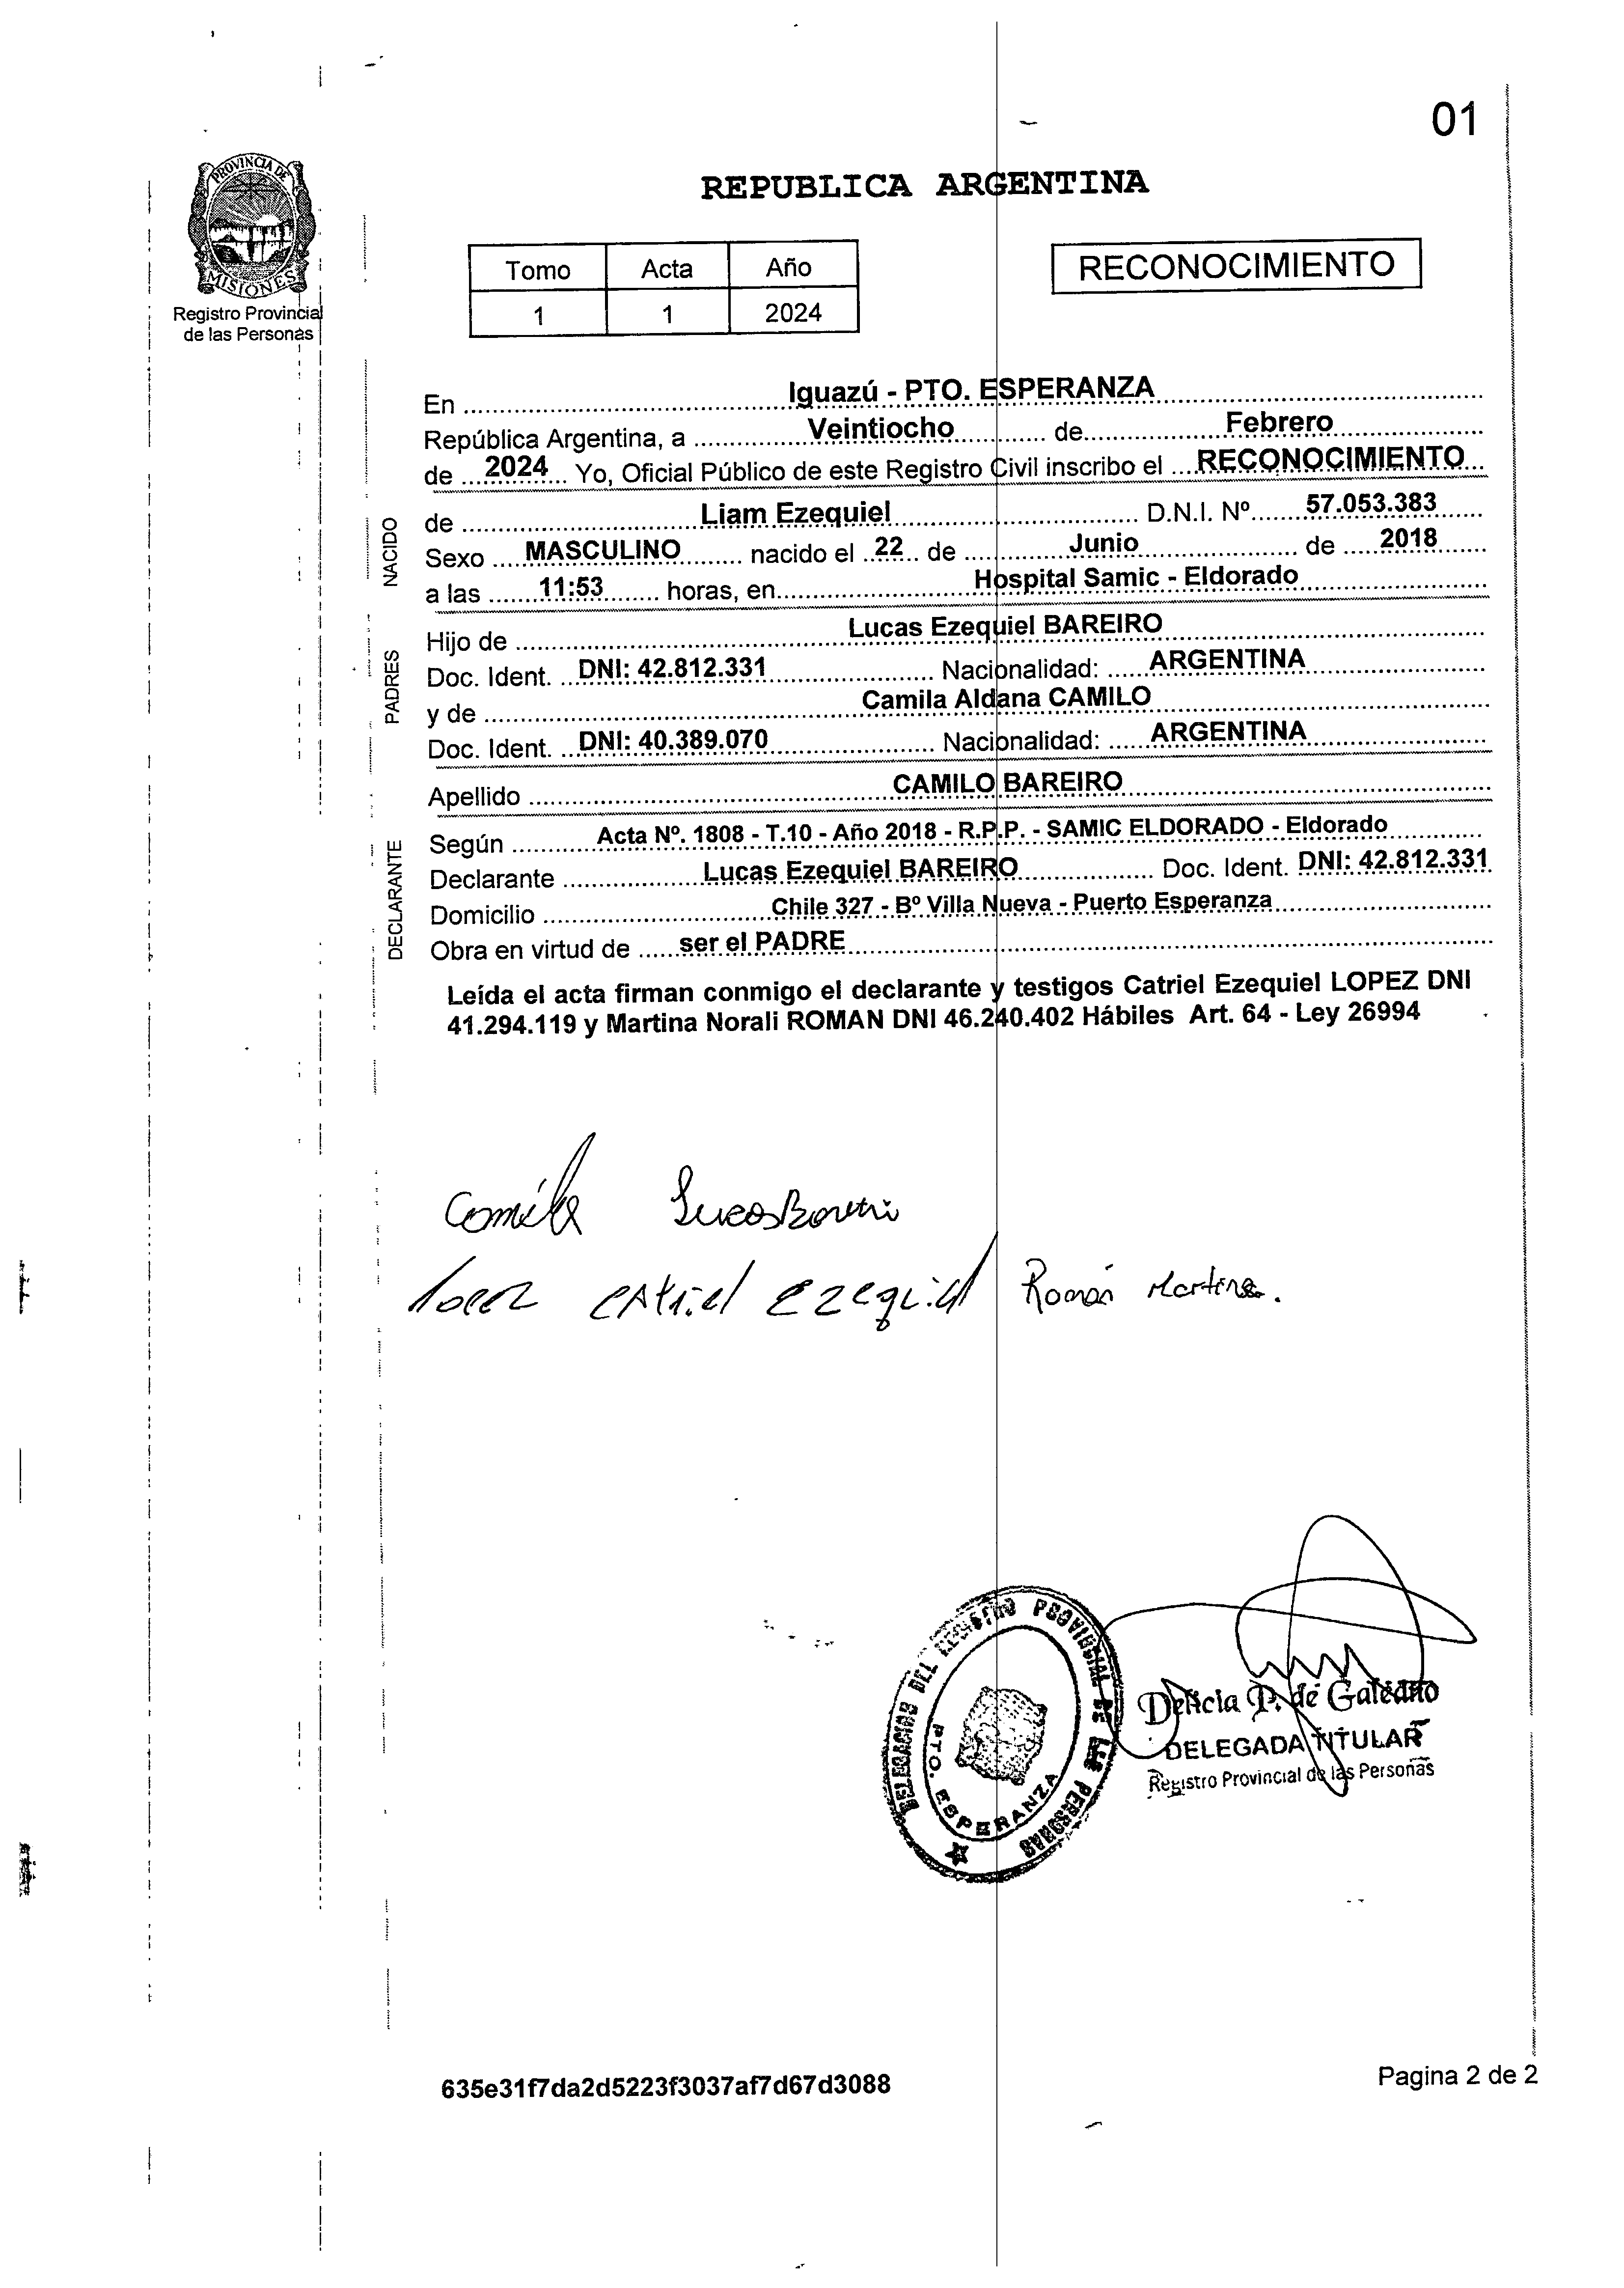 01
PROVINCIA DE
MISIONES
Registro Provincial
de las Personas
REPUBLICA ARGENTINA
Tomo Acta Año
1 1 2024
RECONOCIMIENTO
En Iguazú - PTO. ESPERANZA
República Argentina, a Veintiocho de Febrero
de 2024 Yo, Oficial Público de este Registro Civil inscribo el RECONOCIMIENTO
NACIDO
de Liam Ezequiel D.N.I. Nº 57.053.383
Sexo MASCULINO nacido el 22 de Junio de 2018
a las 11:53 horas, en Hospital Samic - Eldorado
PADRES
Hijo de Lucas Ezequiel BAREIRO
Doc. Ident. DNI: 42.812.331 Nacionalidad: ARGENTINA
y de Camila Aldana CAMILO
Doc. Ident. DNI: 40.389.070 Nacionalidad: ARGENTINA
Apellido CAMILO BAREIRO
DECLARANTE
Según Acta Nº. 1808 - T.10 - Año 2018 - R.P.P. - SAMIC ELDORADO - Eldorado
Declarante Lucas Ezequiel BAREIRO Doc. Ident. DNI: 42.812.331
Domicilio Chile 327 - Bº Villa Nueva - Puerto Esperanza
Obra en virtud de ser el PADRE
Leída el acta firman conmigo el declarante y testigos Catriel Ezequiel LOPEZ DNI
41.294.119 y Martina Norali ROMAN DNI 46.240.402 Hábiles Art. 64 - Ley 26994
Camila Lucas Bareiro
Lopez Catriel Ezequiel Román Martina.
DELEGACION DEL REGISTRO PROVINCIAL DE LAS PERSONAS
PTO. ESPERANZA
Delicia P. de Galeano
DELEGADA TITULAR
Registro Provincial de las Personas
635e31f7da2d5223f3037af7d67d3088
Pagina 2 de 2